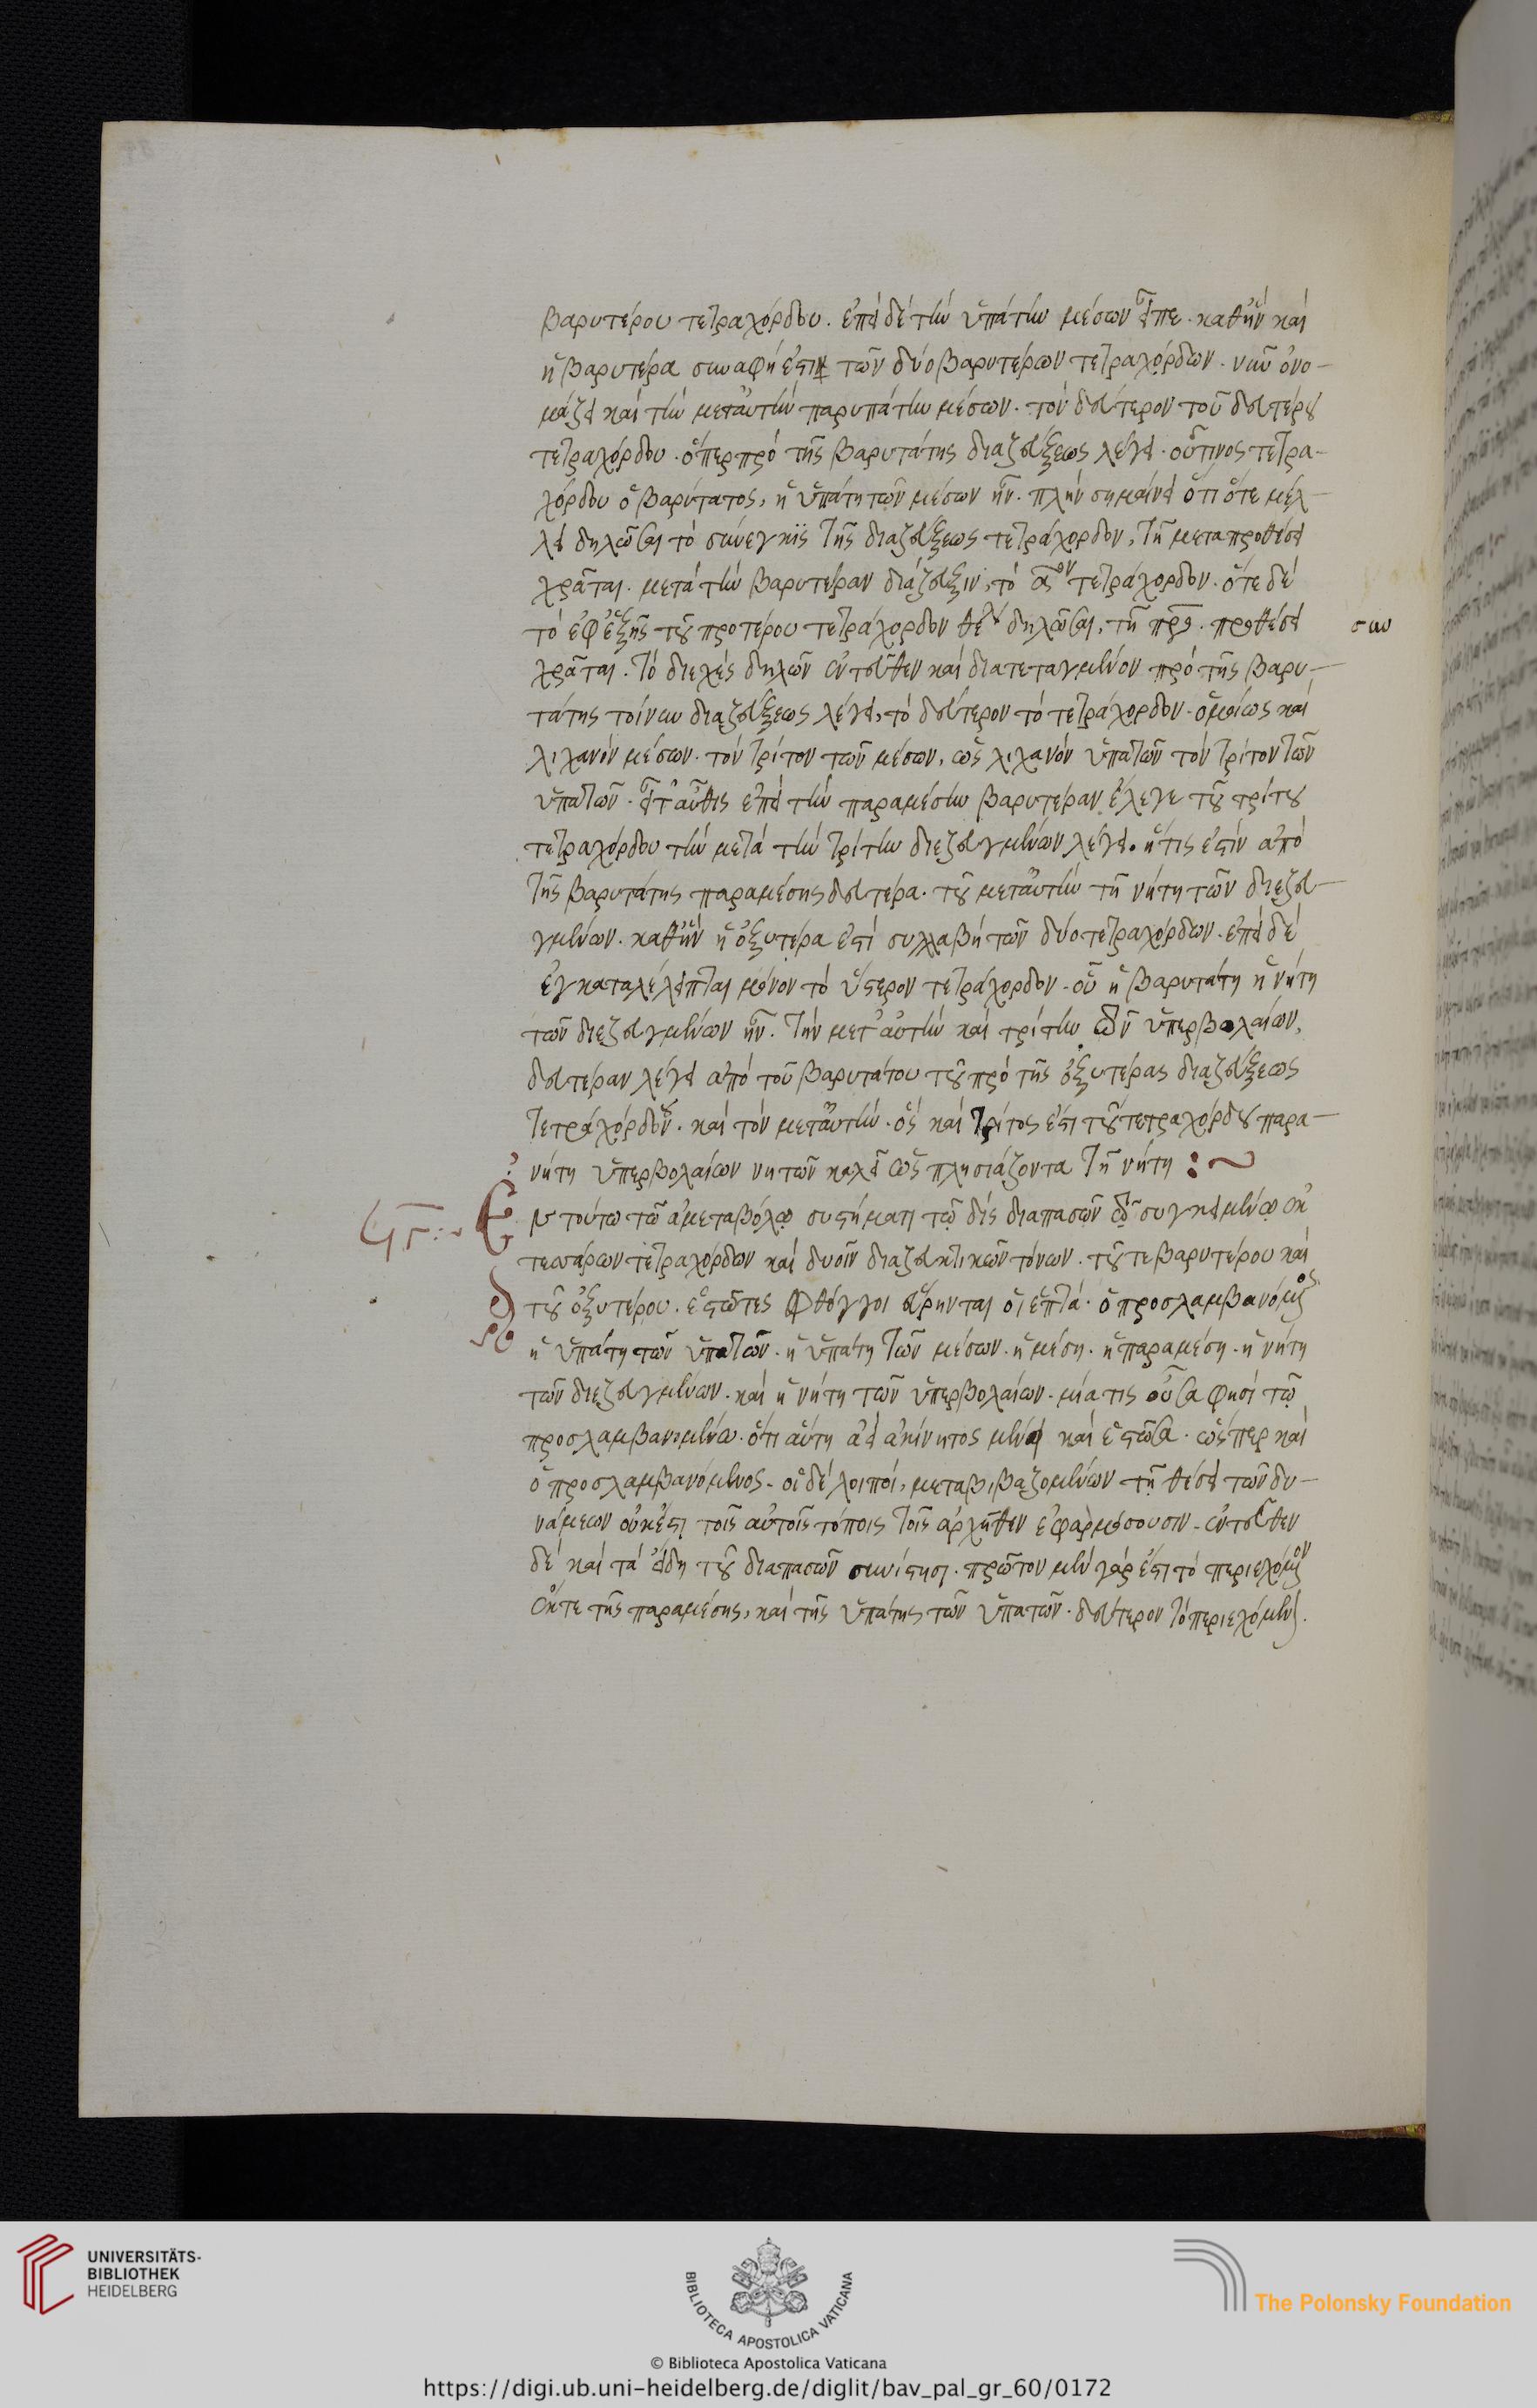 βαρυτέρου τετραχόρδου. ἐπεὶ δὲ τὴν ὑπάτην μέσων εἶπε. καθ' ἣν καὶ
ἡ βαρυτέρα συναφή ἐστιν τῶν δύο βαρυτέρων τετραχόρδων. νῦν ὀνο-
μάζει καὶ τὴν μετ' αὐτὴν παρυπάτην μέσων. τὸν δεύτερον τοῦ δευτέρου
τετραχόρδου. ὅπερ πρὸ τῆς βαρυτάτης διαζεύξεως λέγει. οὗτινος τετρα-
χόρδου ὁ βαρύτατος, ἡ ὑπάτη τῶν μέσων ἦν. πλὴν σημαίνει ὅτι ὅτε μέλ-
λει δηλῶσαι τὸ σύνεγγϊς τῆς διαζεύξεως τετράχορδον, τῇ μετα προθέσει
χρᾶται. μετὰ τὴν βαρυτέραν διάζευξιν, τὸ αον τετράχορδον. ὅτε δὲ
τὸ ἐφεξῆς τοῦ προτέρου τετράχορδον θέλει δηλῶσαι, τῇ πρὸ. προθέσει
χρᾶται. τὸ διεχὲς δηλῶν ἐντεῦθεν καὶ διατεταγμένον πρὸ τῆς βαρυ-
τάτης τοίνυν διαζεύξεως λέγει, τὸ δεύτερον τὸ τετράχορδον. ὁμοίως καὶ
λιχανὸν μέσων. τὸν τρίτον τῶν μέσων, ὡς λιχανὸν ὑπατῶν τὸν τρίτον τῶν
ὑπατῶν. εἶτ' αὖθις ἐπεὶ τὴν παραμέσην βαρυτέραν ἔλεγε τοῦ τρίτου
τετραχόρδου τὴν μετὰ τὴν τρίτην διεζευγμένων λέγει. ἥτις ἐστὶν ἀπὸ
τῆς βαρυτάτης παραμέσης δευτέρα. τοῦ μετ' αὐτὴν τῇ νήτη τῶν διεζευ-
γμένων. καθ' ἣν ἡ ὀξυτέρα ἐστὶ συλλαβὴ τῶν δύο τετραχόρδων. ἐπεὶ δὲ
ἐγκαταλέλειπται μόνον τὸ ὕστερον τετράχορδον. οὗ ἡ βαρυτάτη ἡ νήτη
τῶν διεζευγμένων ἦν. τὴν μετ' αὐτὴν καὶ τρίτην τῶν ὑπερβολαίων,
δευτέραν λέγει ἀπὸ τοῦ βαρυτάτου τοῦ πρὸ τῆς ὀξυτέρας διαζεύξεως
τετραχόρδου. καὶ τὸν μετ' αὐτὴν. ὃς καὶ τρίτος ἐστὶ τοῦ τετραχόρδου παρα-
νήτη ὑπερβολαίων νητῶν καλεῖ ὡς πλησιάζοντα τῇ νήτῃ :~
Ἐν τούτω τῶ ἀμεταβόλῳ συστήματι τῷ δὶς διαπασῶν τῷ συγκειμένῳ ἐκ
τεσσάρων τετραχόρδων καὶ δυοῖν διαζευκτικῶν τόνων. τοῦ τε βαρυτέρου καὶ
τοῦ ὀξυτέρου. ἑστῶτες φθόγγοι εὕρηνται οἱ ἑπτά. ὁ προσλαμβανόμενος
ἡ ὑπάτη τῶν ὑπατῶν. ἡ ὑπάτη τῶν μέσων. ἡ μέση. ἡ παραμέση. ἡ νήτη
τῶν διεζευγμένων. καὶ ἡ νήτη τῶν ὑπερβολαίων. μία τις οὖσα φησὶ τῷ
προσλαμβανομένῳ. ὅτι αὕτη ἀεὶ ἀκίνητος μένει καὶ ἑστῶσα. ὥσπερ καὶ
ὁ προσλαμβανόμενος. οἱ δὲ λοιποί, μεταβιβαζομένων τῇ θέσει τῶν δυ-
νάμεων οὐκέτι τοῖς αὐτοῖς τόποις τοῖς ἀρχῆθεν ἐφαρμόσουσιν. ἐντεῦθεν
δὲ καὶ τὰ εἴδη τοῦ διαπασῶν συνίστησι. πρῶτον μὲν γάρ ἐστι τὸ περιεχόμενον
ἔκ τε τῆς παραμέσης, καὶ τῆς ὑπάτης τῶν ὑπατῶν. δεύτερον τὸ περιεχόμενον.
συν
UNIVERSITÄTS-
BIBLIOTHEK
HEIDELBERG
BIBLIOTECA APOSTOLICA VATICANA
© Biblioteca Apostolica Vaticana
The Polonsky Foundation
https://digi.ub.uni-heidelberg.de/diglit/bav_pal_gr_60/0172